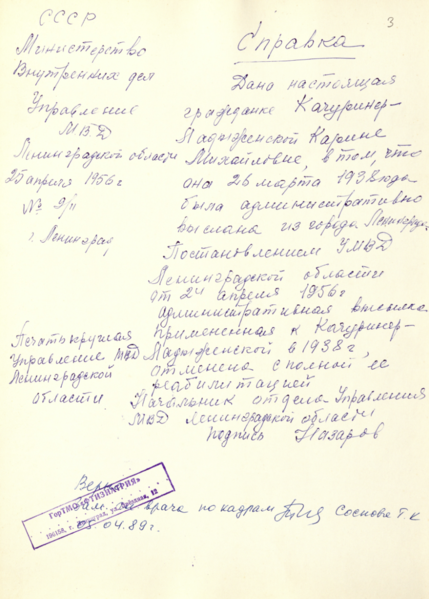 3
СССР
Министерство
Внутренних дел
Управление
МВД
Ленинградской области
25 апреля 1956 г
№ 9/п
г. Ленинград
Справка
Дана настоящая
гражданке Качуринер-
Карине
Михайловне, в том, что
она 26 марта 1938 года
была административно
выслана из города Ленинграда
Постановлением УМВД
Ленинградской области
от 24 апреля 1956 г
административная высылка
применённая к Качуринер-
в 1938 г,
отменена с полной ее
реабилитацией
Начальник отдела Управления
МВД Ленинградской области
подпись Назаров
Печать круглая
Управление МВД
Ленинградской
области
Верно
ГорТМО «ФТИЗИАТРИЯ»
врача по кадрам Соснова Т.К
04.89г.